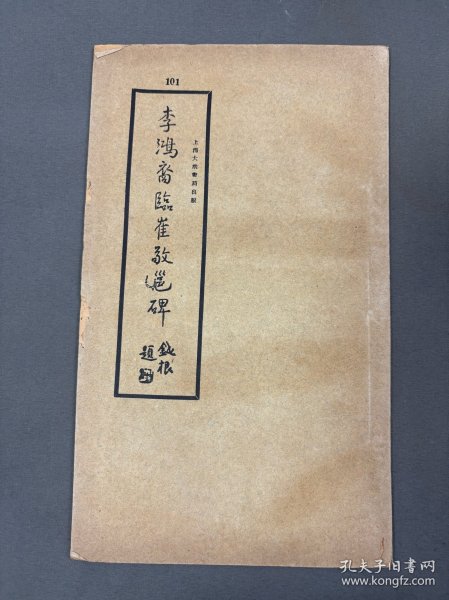 101
上海大眾書局出版
李鴻裔臨崔敬邕碑
鐵根
題
孔夫子旧书网
www.kongfz.com